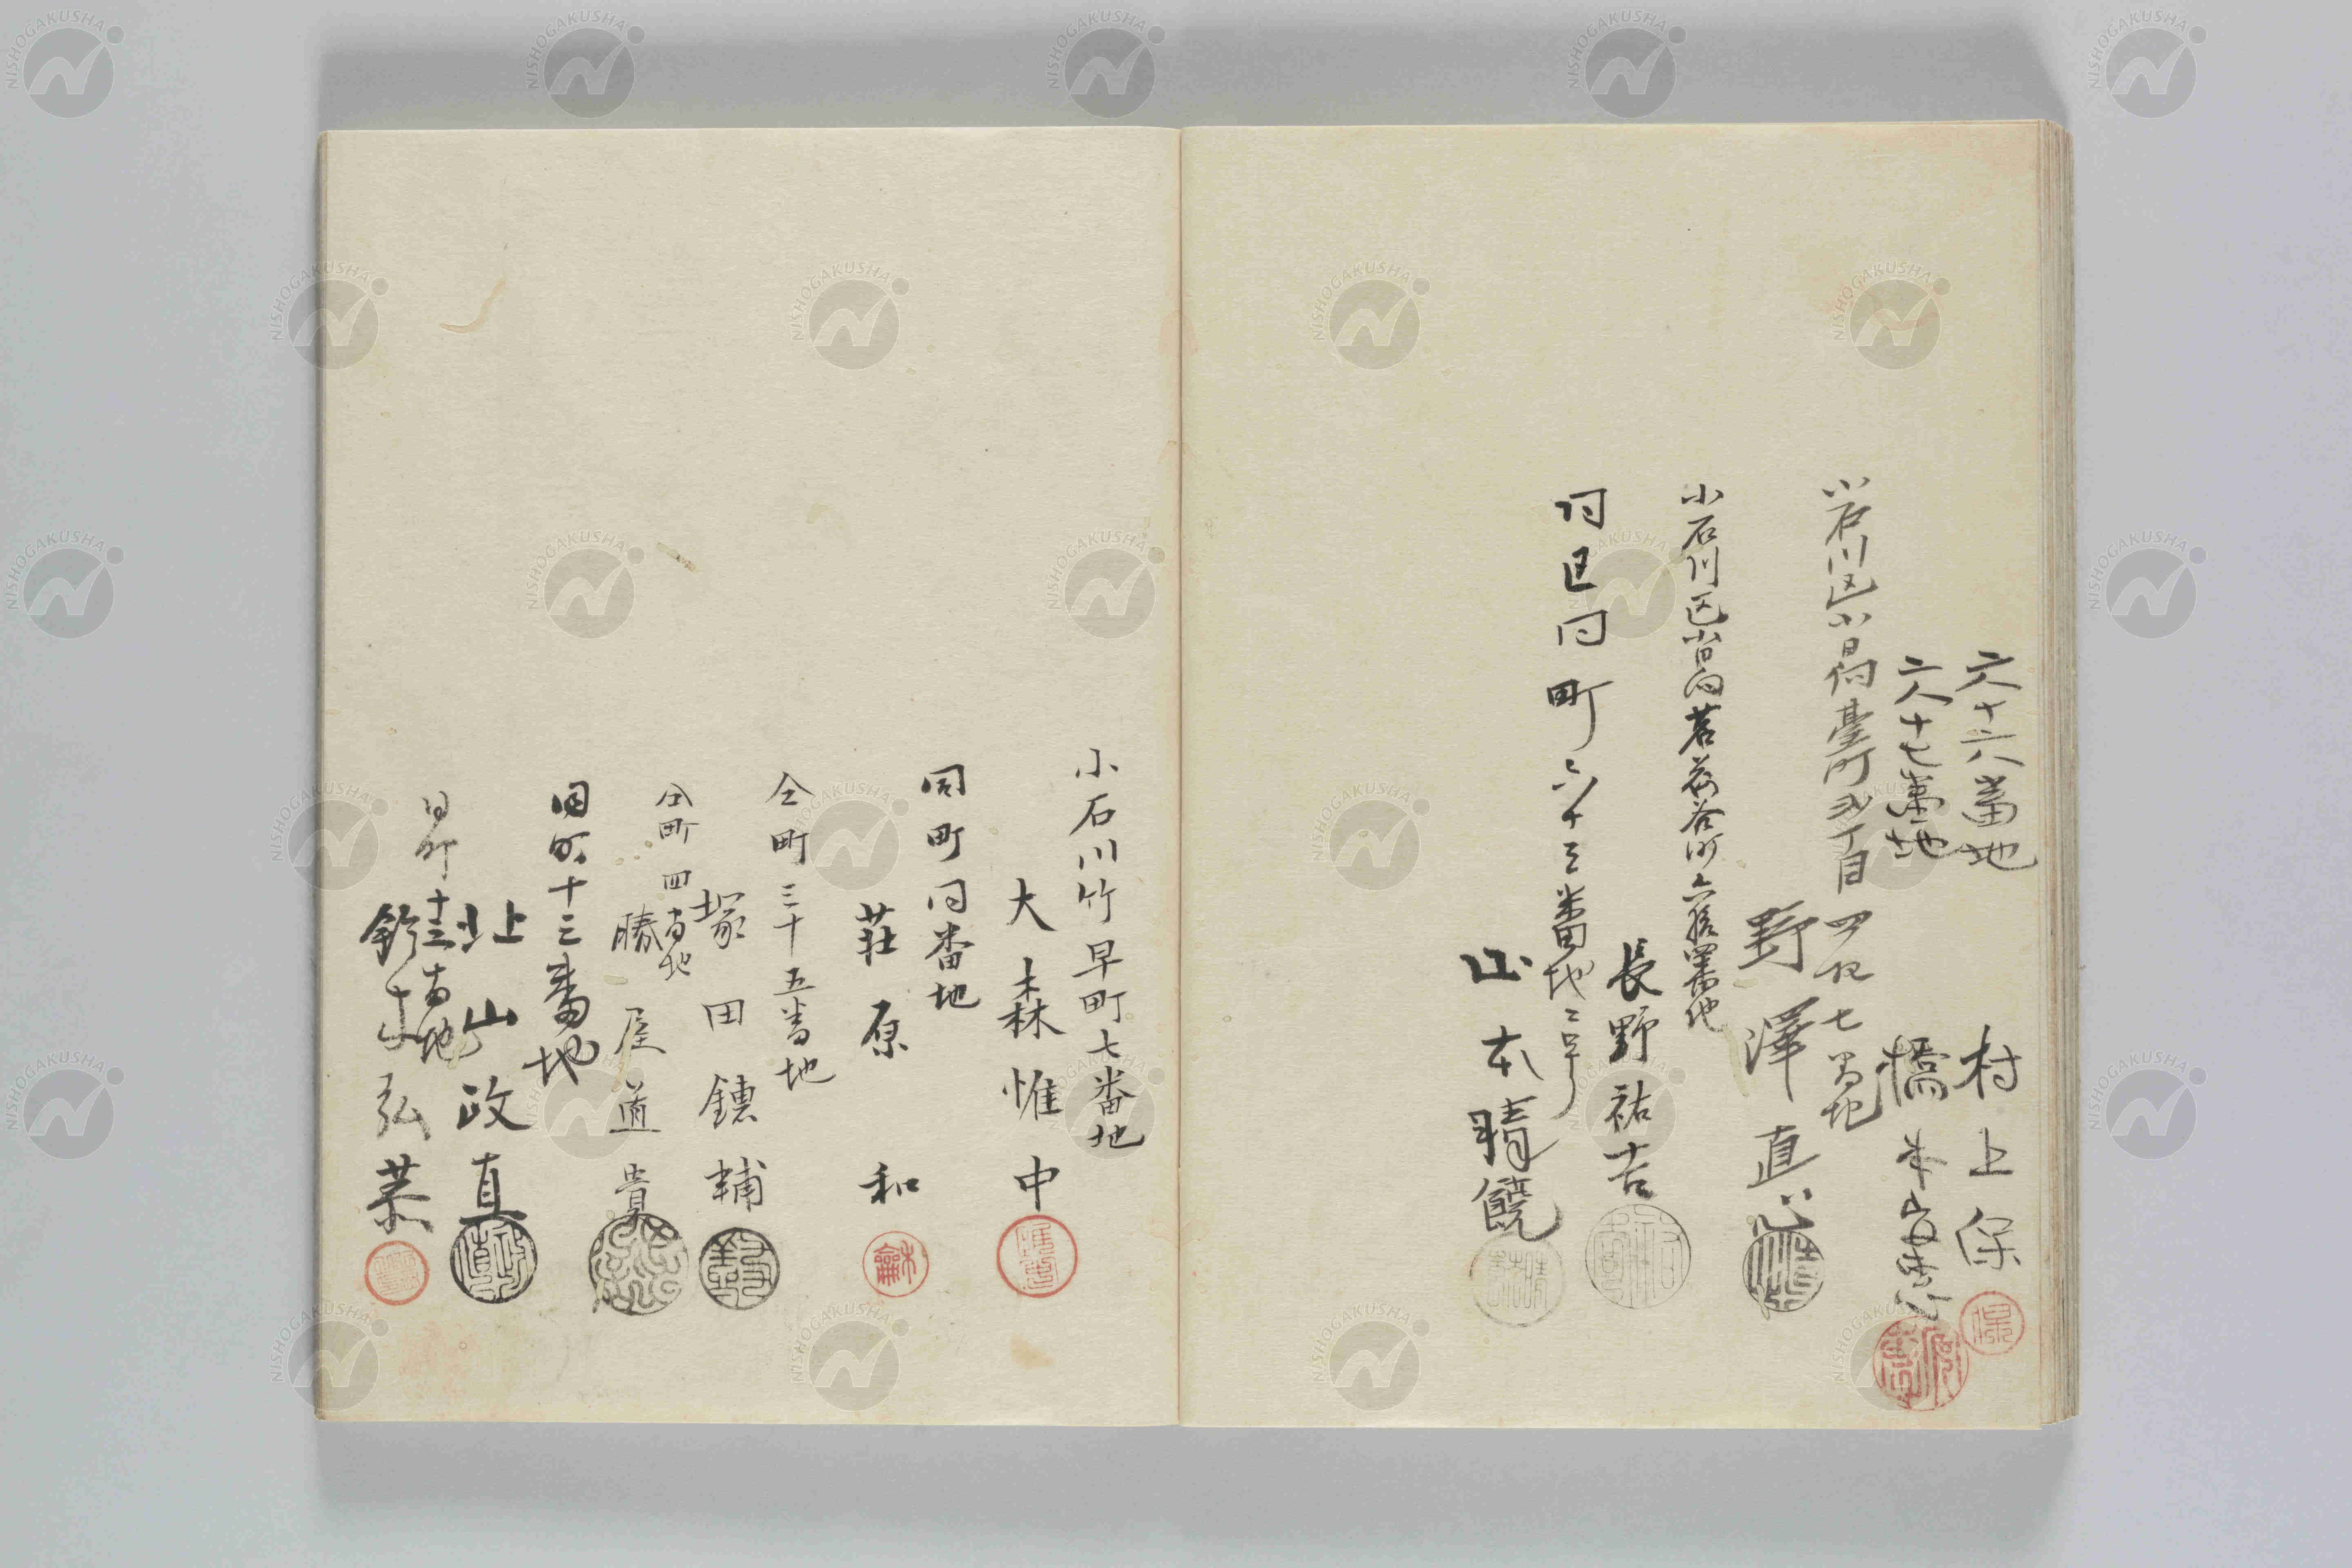 六十六番地
村上保
六十七番地
橋本
小石川区小日向臺町弐丁目
四拾七番地
野澤直
小石川区小日向茗荷谷町六拾四番地
長野祐吉
同区同町六十三番地二号
山本晴饒
小石川竹早町七番地
大森惟中
同町同番地
荘原和
仝町三十五番地
塚田鏸輔
仝町四番地
勝屋道貴
同町十三番地
北山政真
同町十三番地
鈴木弘恭
NISHOGAKUSHA